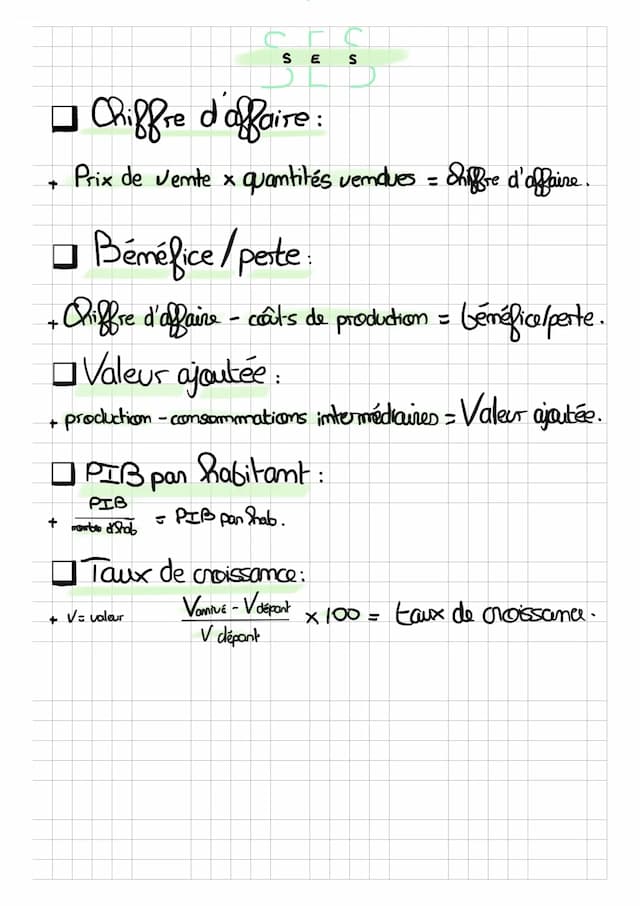 SES
S E S
Chiffre d'affaire :
+ Prix de vente x quantités vendues = Chiffre d'affaire.
Bénéfice/perte :
+ Chiffre d'affaire - coûts de production = bénéfice/perte.
Valeur ajoutée :
+ production - consommations intermédiaires = Valeur ajoutée.
PIB par habitant :
PIB
+ nombre d'hab = PIB par hab.
Taux de croissance :
+ V = valeur Varrivé - V départ x 100 = taux de croissance.
V départ